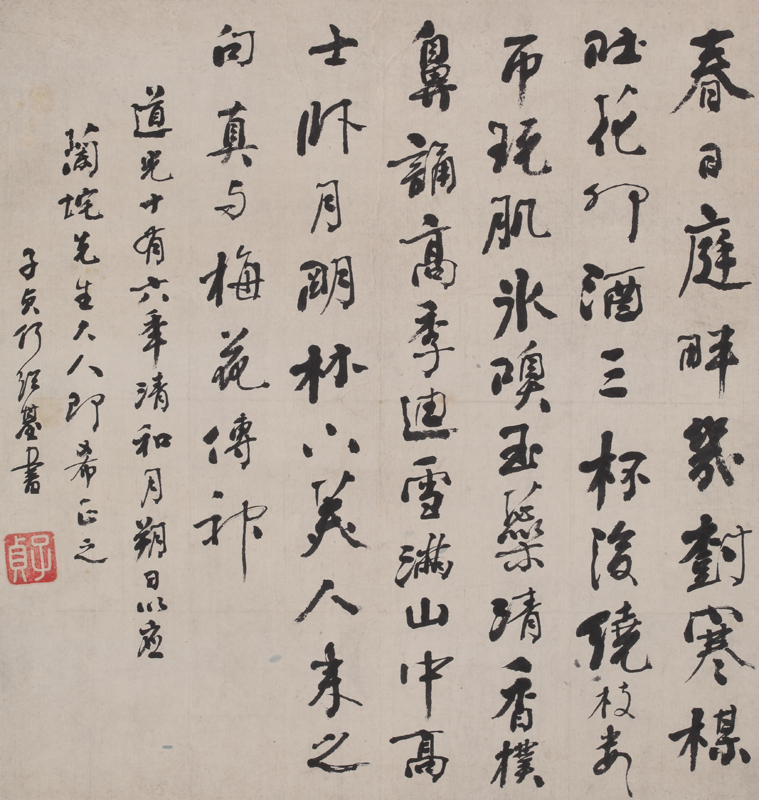 春日庭畔幾對寒楳
吐花卯酒三杯後繞枝數
帀玩肌氷嗅玉蘂清香樸
鼻誦高季迪雪滿山中高
士卧月明林下美人来之
句真与梅花傳神
道光十有六年清和月朔日以應
蘭垞先生大人即希正之
子貞何紹基書
子貞